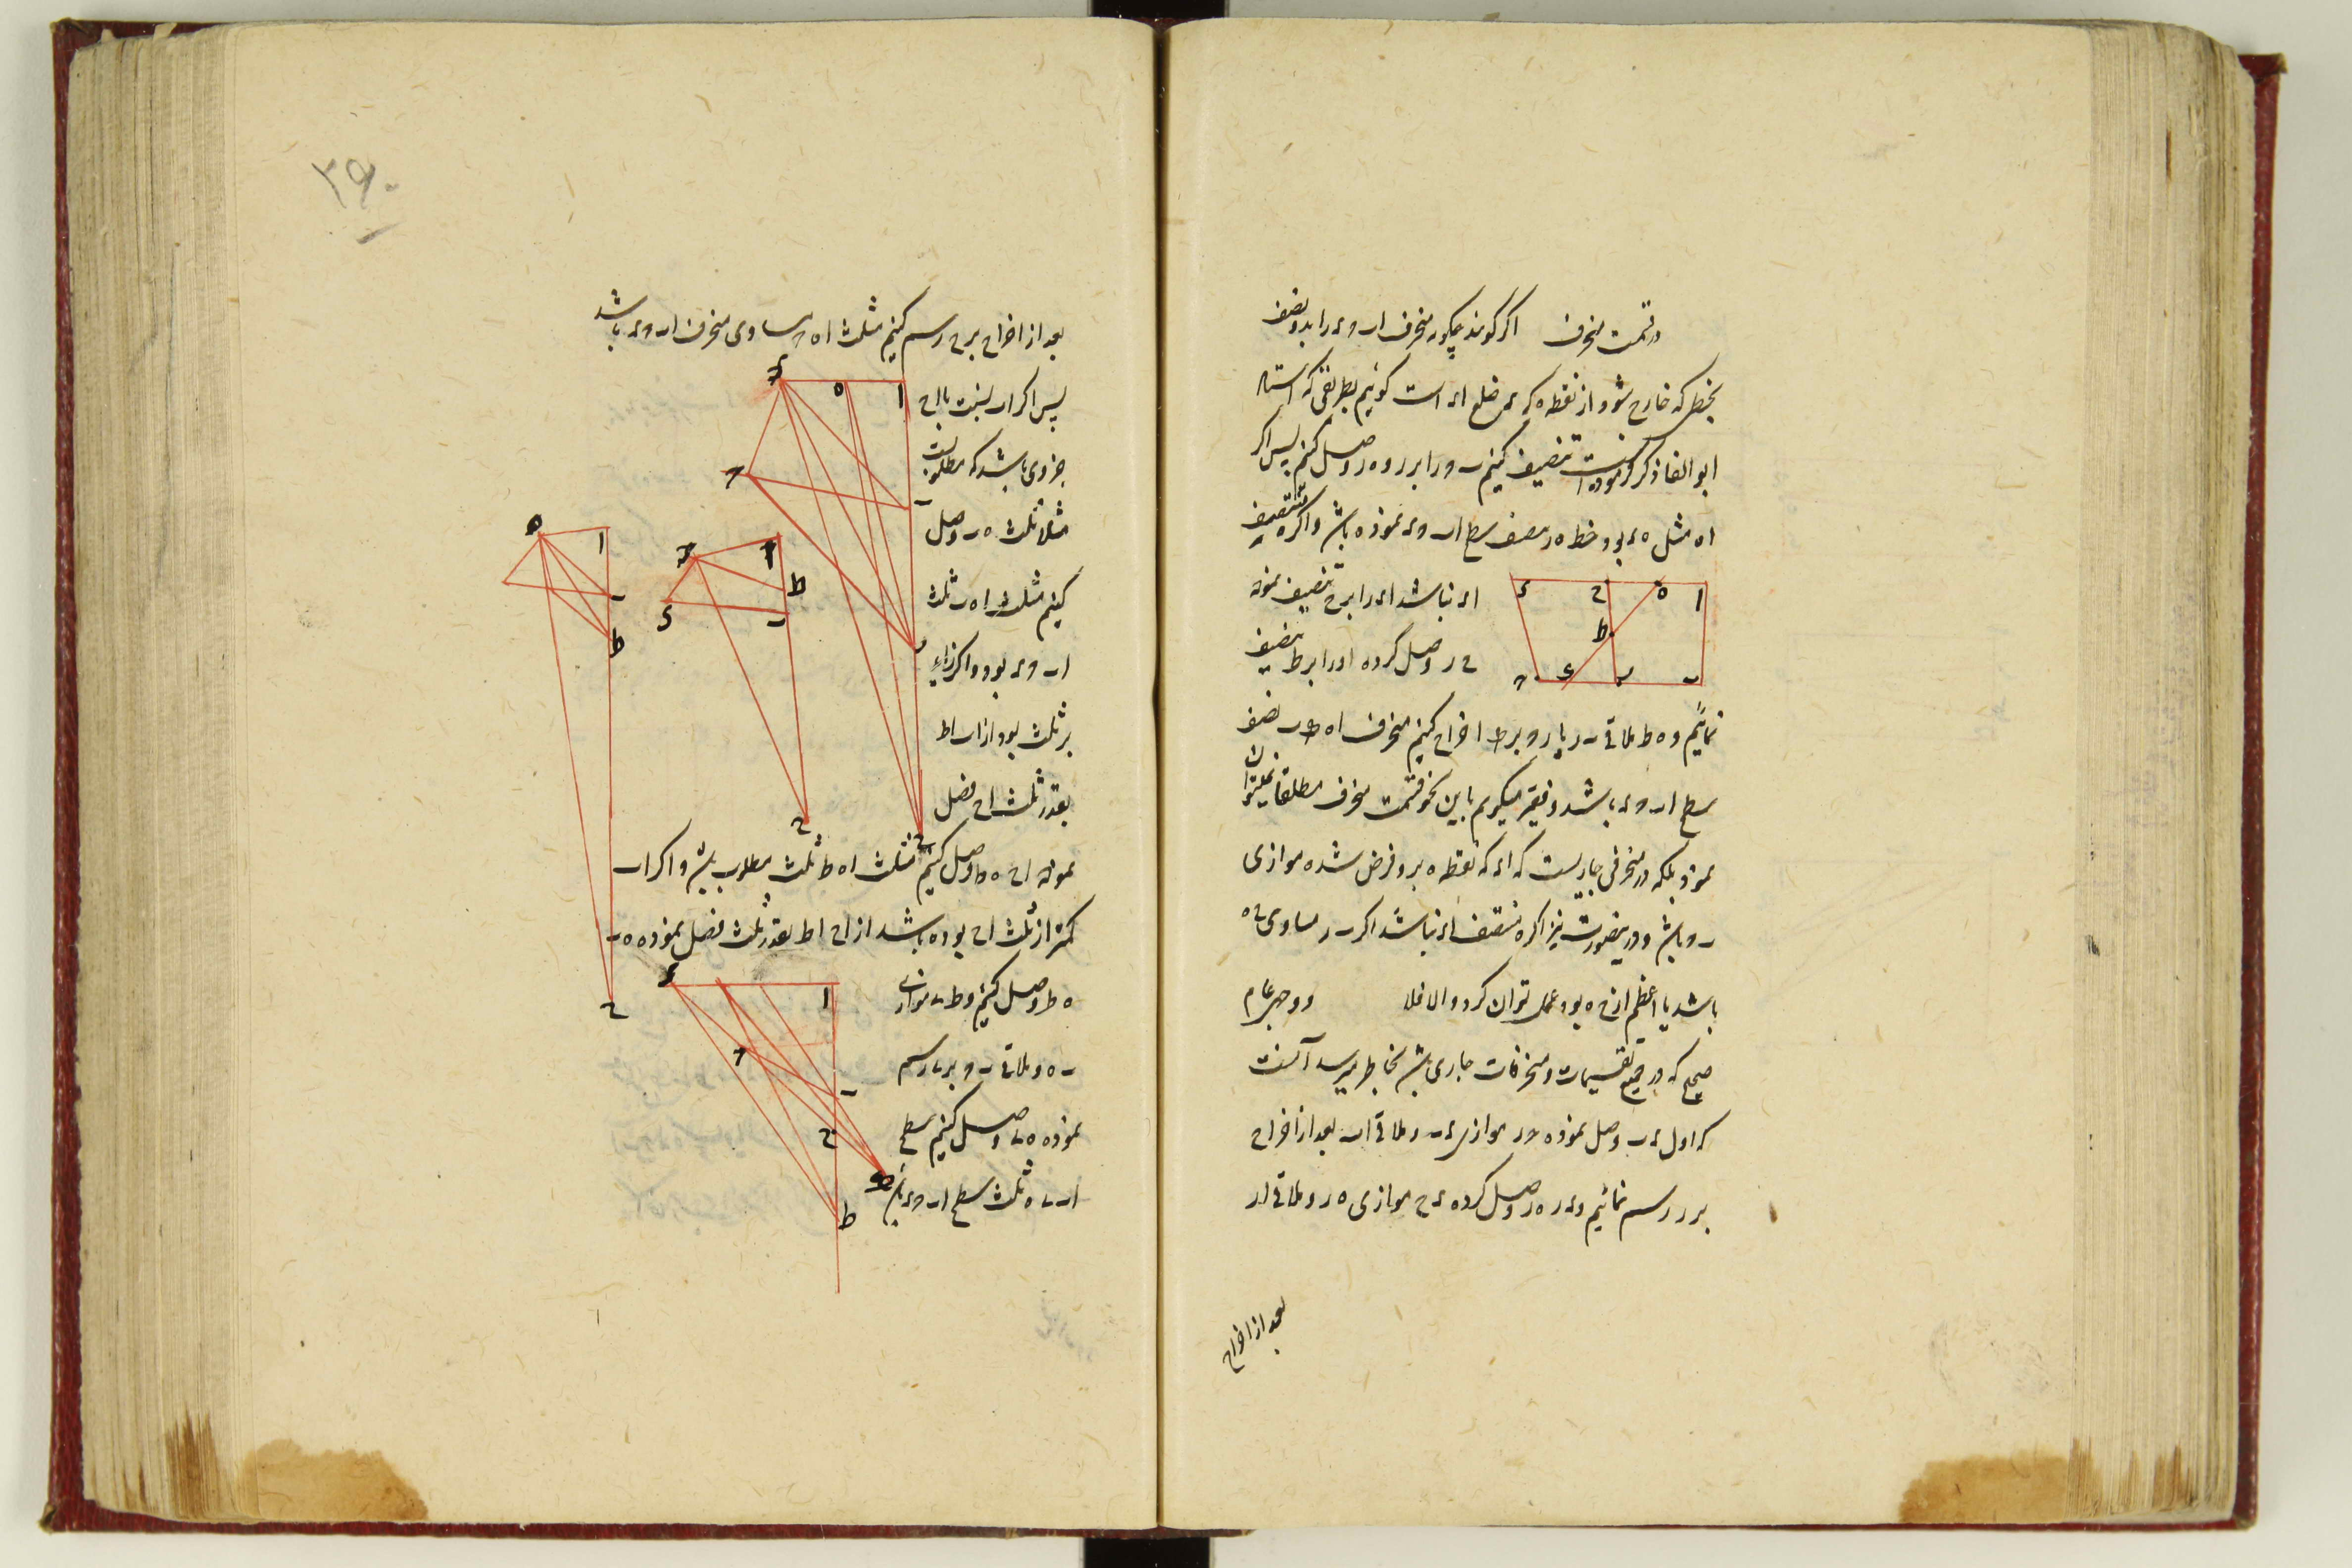 در قسمت منحرف اگر گویند چگونه منحرف ا ب ح د را بدو نصف
بخطی که خارج شود از نقطه ه که بر ضلع ا د است گوئیم بطریقی که استاد
ابو الوفا ذکر نموده است تنصیف کنیم ب ح را بر ر و ه ر وصل کنیم پس اگر
ا ه مثل ه د بود خط ه ر نصف سطح ا ب ح د نموده باشد و اگر ه منتصف
ا د نباشد ا د را بر ح تنصیف نموده
ح ر وصل کرده او را بر ط تنصیف
نمائیم و ه ط ملاقی ب ر یا ر ح بر ی اخراج کنیم منحرف ا ه ی ب نصف
سطح ا ب ح د باشد و فقیر میگویم باین نحو قسمت منحرف مطلقا نمیتوان
نمود بلکه در منحرفی جاریست که ا د که نقطه ه برو فرض شده موازی
ب ح باشد و درینصورت نیز اگر ه منتصف ا د نباشد اگر ب ر مساوی ح ه
باشد یا اعظم از ح ه بود عمل توان کرد والا فلا و وجه عام
صحیح که در جمیع تقسیمات و منحرفات جاری باشد بخاطر میرسد آنست
که اول د ب وصل نموده ح ر موازی د ب و ملاقی ا ب بعد از اخراج
بر ر رسم نمائیم و د ر ه ر وصل کرده د ح موازی ه ر و ملاقی ا ر
بعد از اخراج
۲۹۰
بعد از اخراج بر ح رسم کنیم مثلث ا ه ح مساوی منحرف ا ب ح د باشد
پس اگر ا ب نسبت با ا ح
جزوی باشد که مطلوبست
مثلا ثلث ه ب وصل
کنیم مثلث ا ه ب ثلث
ا ب ح د بود و اگر زاید
بر ثلث بود از ا ب ا ط
بقدر ثلث ا ح فصل
نموده از ه ط وصل کنیم مثلث ا ه ط ثلث مطلوب باشد و اگر ا ب
کمتر از ثلث ا ح بوده باشد از ا ح ا ط بقدر ثلث فصل نموده ه ب
ه ط وصل کنیم و ط ی موازی
ب ه و ملاقی ب ح بر ی رسم
نموده ه ی وصل کنیم سطح
ا ب ی ه ثلث سطح ا ب ح د باشد